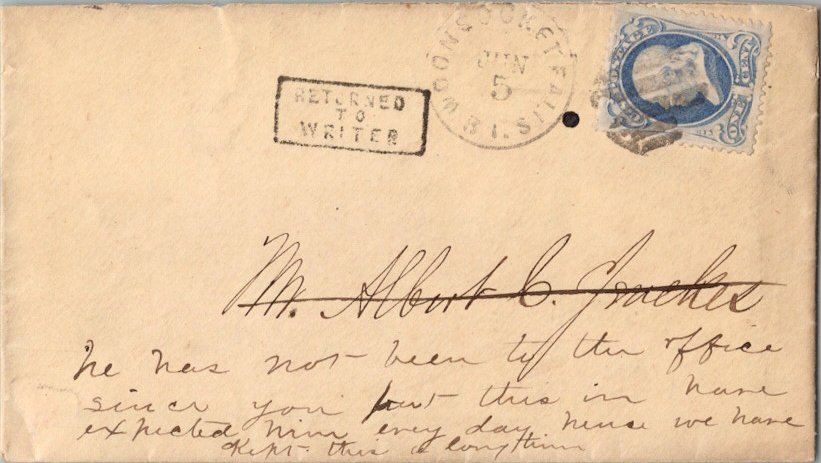 WOONSOCKET FALLS R.I.
JUN
5
RETURNED
TO
WRITER
ONE CENT
Mr. Albert C.
he has not been to the office
since you put this in have
expected him every day hense we have
Kept this a long time